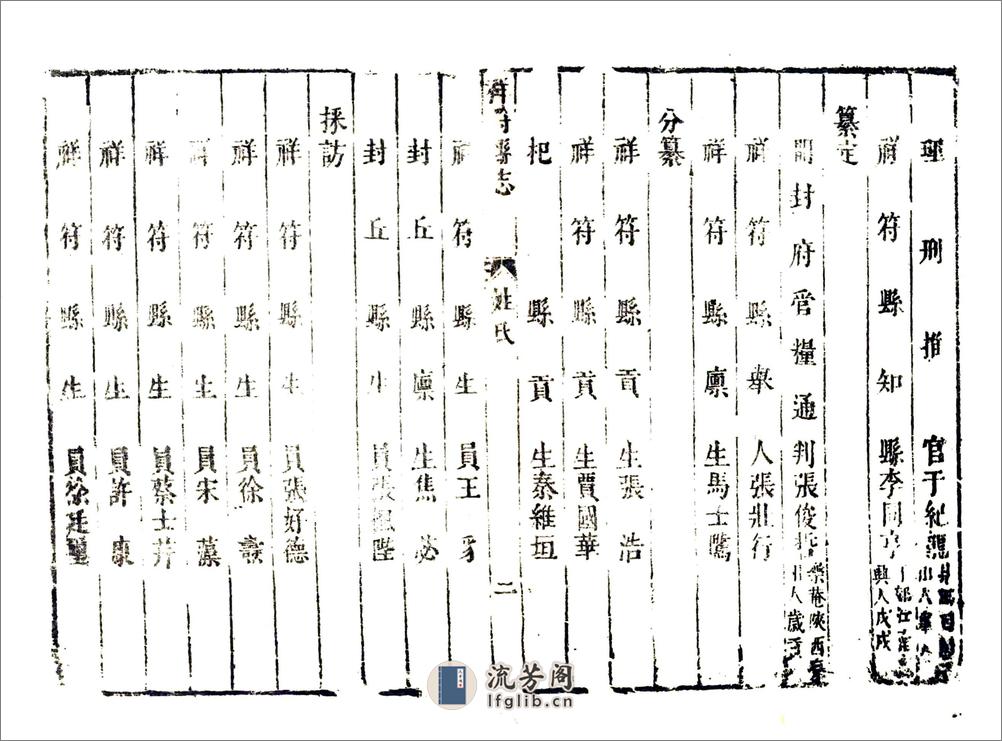 理刑推官于紀龍
祥符縣知縣李同亨 興人戊戌
纂定
開封府管糧通判張俊哲 樂菴陝西 州人歲貢
祥符縣舉人張壯行
祥符縣廩生馬士騭
分纂
祥符縣貢生張浩
祥符縣貢生賈國華
杞縣貢生秦維垣
祥符縣志 姓氏 二
祥符縣生員王豸
封丘縣廩生焦毖
封丘縣生員張組陛
採訪
祥符縣生員張好德
祥符縣生員徐
祥符縣生員宋藻
祥符縣生員蔡士
祥符縣生員許康
祥符縣生員徐廷
流芳阁
lfglib.cn